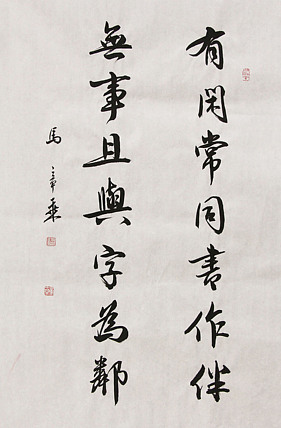 有閑常同書作伴
無事且與字為鄰
馬章乘